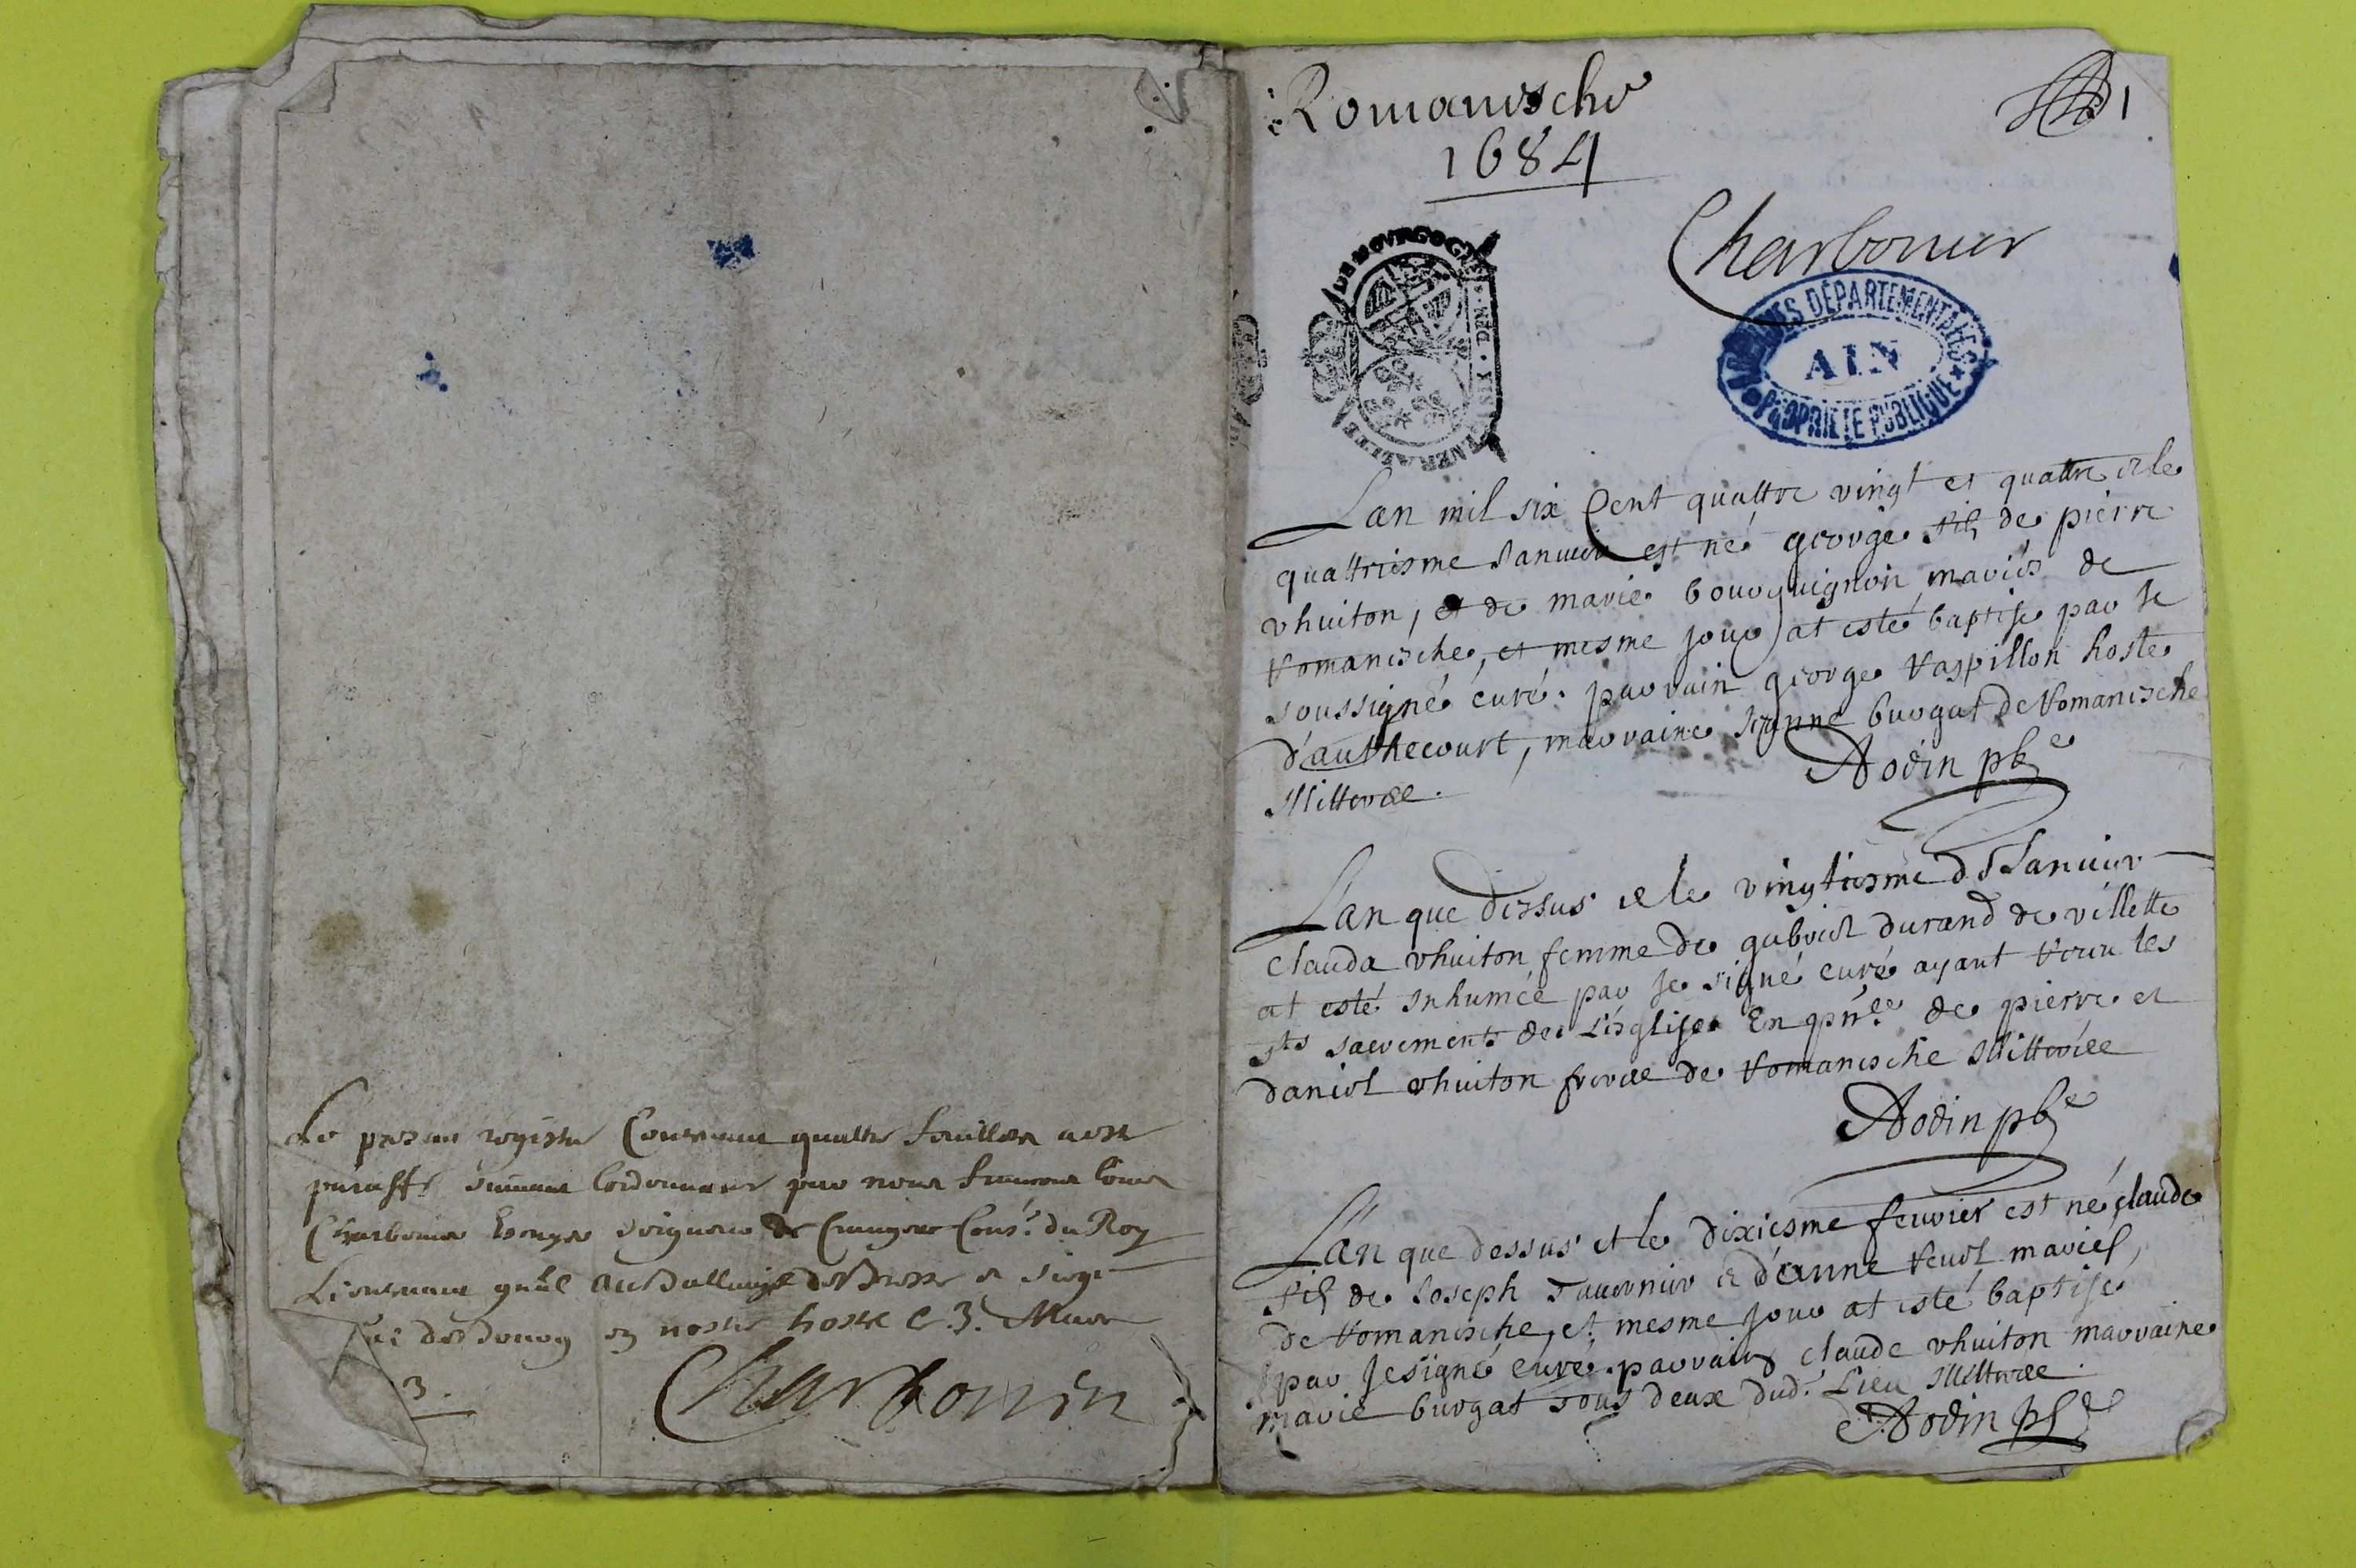 Le present registre Contenant quattre feuillets a esté
paraffé suivant l'ordonnance par nous
Charbonier seigneur de Crangeac Cons.r du Roy
Lieutenant gnãl au Baillage de Bresse et siege
de Bourg en nostre hostel
3.
Charbonier
Romanesche
1684
1
Charbonier
ARCHIVES DÉPARTEMENTALES
AIN
PROPRIÉTÉ PUBLIQUE
DE BOVRGOGNE
Lan mil six Cent quattre vingt et quattre et le
quattriesme Januier est né george fils de pierre
rhuiton, et de marie bourguignon mariés de
romanesche, et mesme jour at esté baptisé par Je
soussigné curé. parrain george raspillon hoste
d'authecourt, marraine Jeanne burgat de romanesche
Illitterée.
Rodin pbre
L'an que dessus et le vingtiesme de Januier
clauda rhuiton femme de gabriel durand de villette
at esté Inhumée par Je signé curé ayant receu les
sts sacrements de L'esglise En pñce de pierre et
daniel rhuiton freres de romanesche Illitterées
Rodin pbre
L'an que dessus et le dixiesme feuvrier est né claude
fils de Joseph Tavernier et d'anne reuel mariés,
de romanesche, et mesme jour at esté baptisé
par Je signé curé. parrain claude rhuiton marraine
marie burgat tous deux dud. Lieu Illitterées.
Rodin pbre